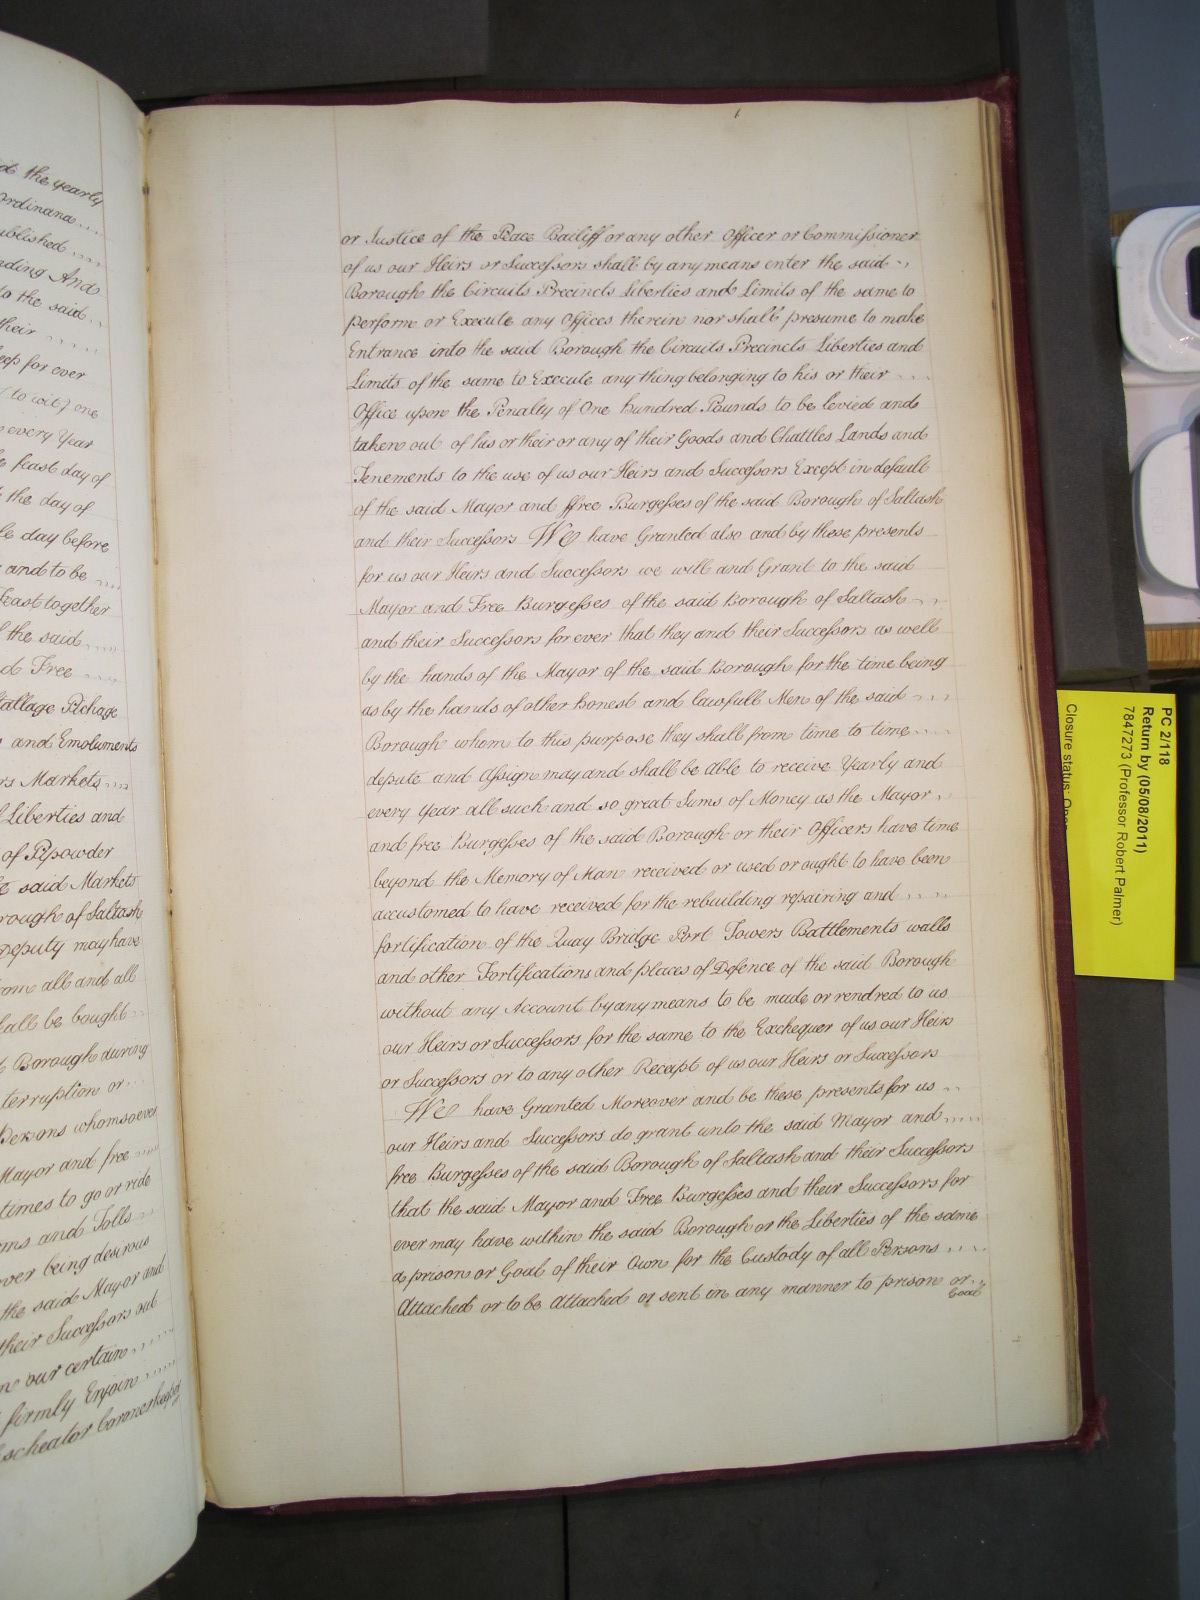 d the yearly
Ordinana...
ublished ....
nding And
to the said ..
their .....
eep for ever
(to wit) one
every Year
e feast day of
the day of
le day before
and to be ....
Feast together
f the said .....
d Free ....
tallage Pichage
s and Emoluments
rs Markets ....
f Liberties and
of Pipowder
te said Markets
rough of Saltash
Deputy may have
rom all and all
hall be bought ...
d Borough during
terruption or ...
Persons whomsoever
Mayor and free ....
times to go or ride
ms and Tolls ...
over being desirous
the said Mayor and
their Successors out
our certain .....
firmly Enjoin .....
scheator
or Justice of the Peace Bailiff or any other Officer or Commissioner
of us our Heirs or Successors shall by any means enter the said ..
Borough the Circuits Precincts Liberties and Limits of the same to
perform or Execute any Offices therein nor shall presume to make
Entrance into the said Borough the Circuits Precincts Liberties and
Limits of the same to Execute any thing belonging to his or their ...
Office upon the Penalty of One hundred Pounds to be levied and
taken out of his or their or any of their Goods and Chattles Lands and
Tenements to the use of us our Heirs and Successors Except in default
of the said Mayor and ffree Burgesses of the said Borough of Saltash
and their Successors We have Granted also and by these presents
for us our Heirs and Successors we will and Grant to the said
Mayor and Free Burgesses of the said Borough of Saltash ...
and their Successors for ever that they and their Successors as well
by the hands of the Mayor of the said Borough for the time being
as by the hands of other honest and lawfull Men of the said ...
Borough whom to this purpose they shall from time to time ....
depute and Assign may and shall be able to receive Yearly and
every Year all such and so great Sums of Money as the Mayor ..
and free Burgesses of the said Borough or their Officers have time
beyond the Memory of Man received or used or ought to have been
accustomed to have received for the rebuilding repairing and ....
fortification of the Quay Bridge Port Towers Battlements walls
and other Fortifications and places of Defence of the said Borough
without any Account by any means to be made or rendred to us
our Heirs or Successors for the same to the Exchequer of us our Heirs
or Successors or to any other Receipt of us our Heirs or Successors
We have Granted Moreover and be these presents for us ..
our Heirs and Successors do grant unto the said Mayor and .....
free Burgesses of the said Borough of Saltash and their Successors
that the said Mayor and Free Burgesses and their Successors for
ever may have within the said Borough or the Liberties of the same
a prison or Goal of their Own for the Custody of all Persons ....
Attached or to be Attached or sent in any manner to prison or ..
Goal
PC 2/118
Return by (05/08/2011)
7847273 (Professor Robert Palmer)
Closure status: Open